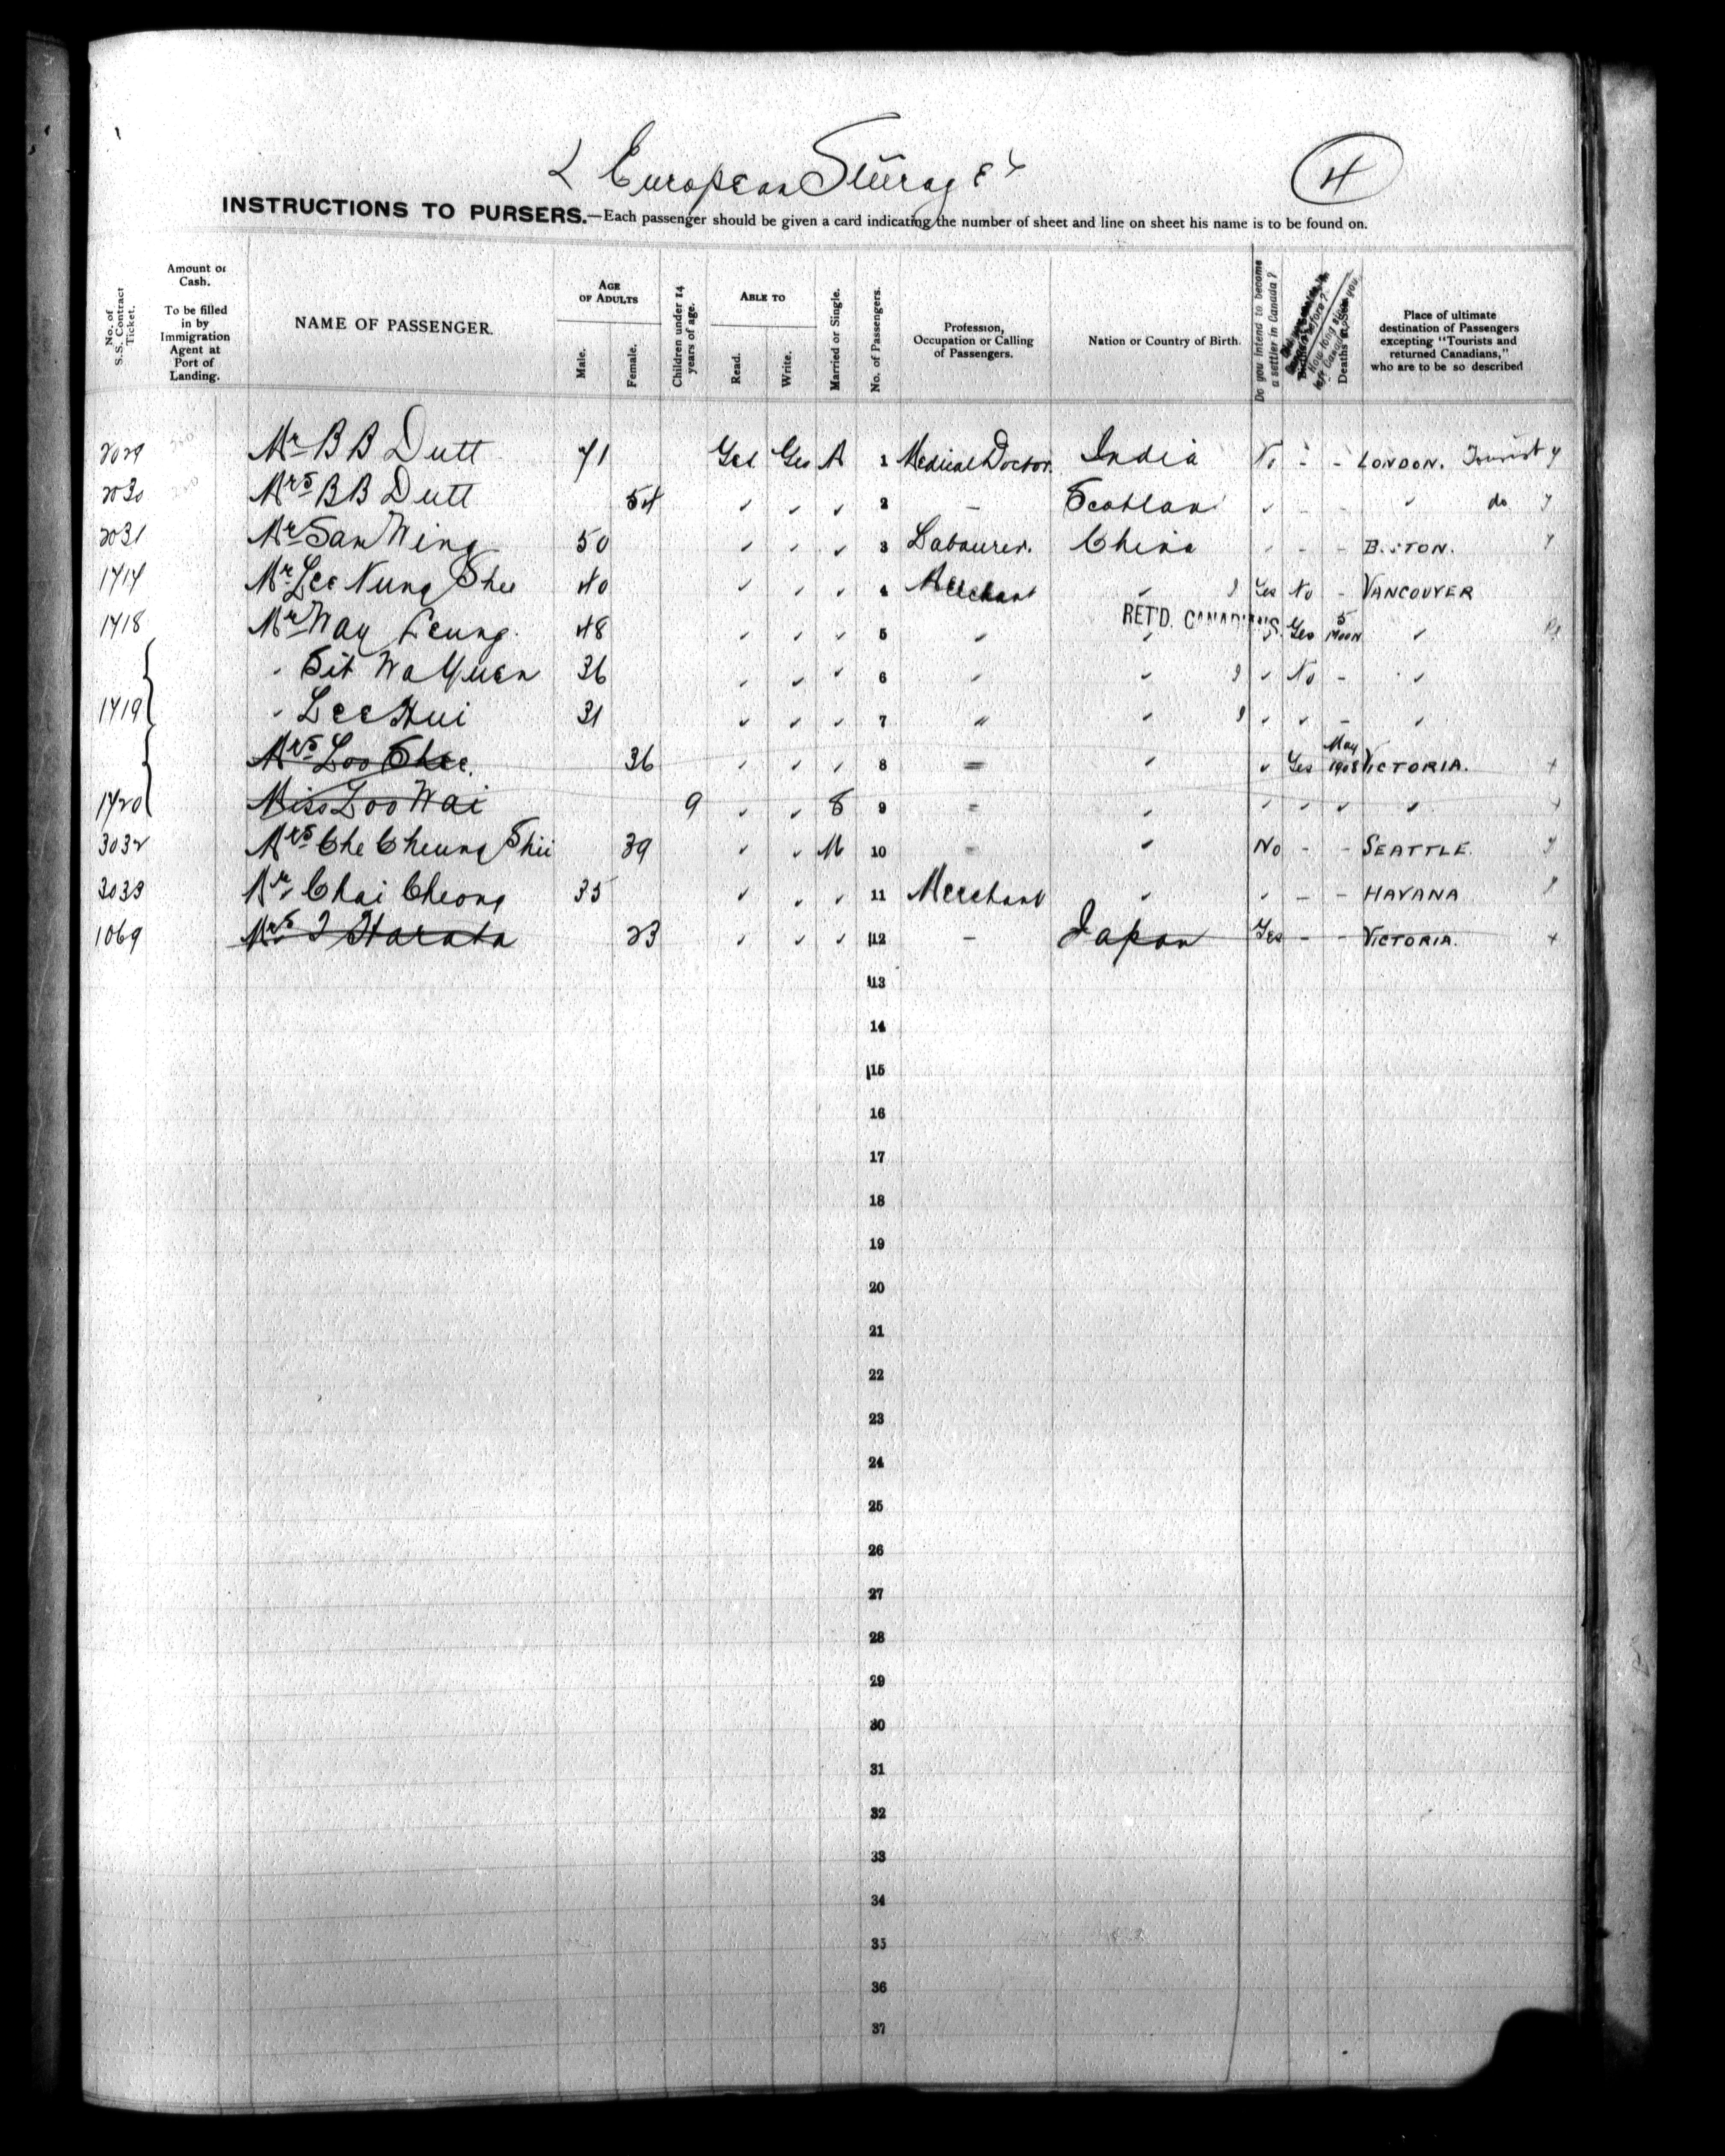 European Steerage
4
INSTRUCTIONS TO PURSERS.—Each passenger should be given a card indicating the number of sheet and line on sheet his name is to be found on.
No. of S.S. Contract Ticket.
Amount of Cash. To be filled in by Immigration Agent at Port of Landing.
NAME OF PASSENGER.
AGE OF ADULTS
Male.
Female.
Children under 14 years of age.
ABLE TO
Read.
Write.
Married or Single.
No. of Passengers.
Profession, Occupation or Calling of Passengers.
Nation or Country of Birth.
Do you intend to become a settler in Canada?
Place of ultimate destination of Passengers excepting "Tourists and returned Canadians," who are to be so described
2029 Mr B B Dutt 71 Yes Yes M 1 Medical Doctor. India No - - LONDON. Tourist
2030 Mrs B B Dutt 54 " " " 2 - Scotland " - - " do
2031 Mr Sam Wing 50 " " " 3 Labourer. China " - - BOSTON.
1417 Mr Lee Nung Shee 40 " " " 4 Merchant " Yes No - VANCOUVER
1418 Mr Way Leung. 48 " " " 5 " " RET'D. CANADIANS " Yes 5 Moon "
" Sit Wa Yuen 36 " " " 6 " " " No - "
1419 " Lee Hui 31 " " " 7 " " " " - "
Mrs Loo Shee. 36 " " " 8 = " " Yes May 1908 VICTORIA.
1420 Miss Loo Wai 9 " " S 9 = " " " " "
3032 Mrs Che Cheung Shii 39 " " M 10 = " No - - SEATTLE.
3033 Mr. Chai Cheong 35 " " " 11 Merchant " " - - HAVANA
1069 Mrs I Harata 23 " " " 12 - Japan Yes - - VICTORIA.
13
14
15
16
17
18
19
20
21
22
23
24
25
26
27
28
29
30
31
32
33
34
35
36
37